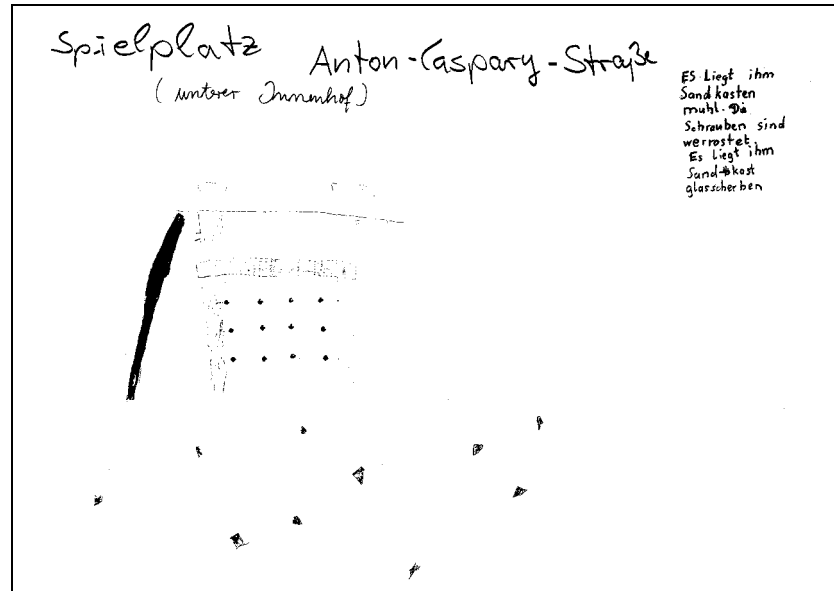 Spielplatz Anton-Caspary-Straße
(unterer Innenhof)
ES Liegt ihm
Sandkasten
muhl. Die
Schrauben sind
werrostet.
Es Liegt ihm
Sandkast
glasscherben